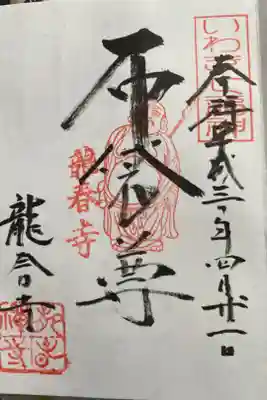 いわき七福神
奉拝 平成三十年四月廿一日
布袋尊
龍春寺
龍春寺